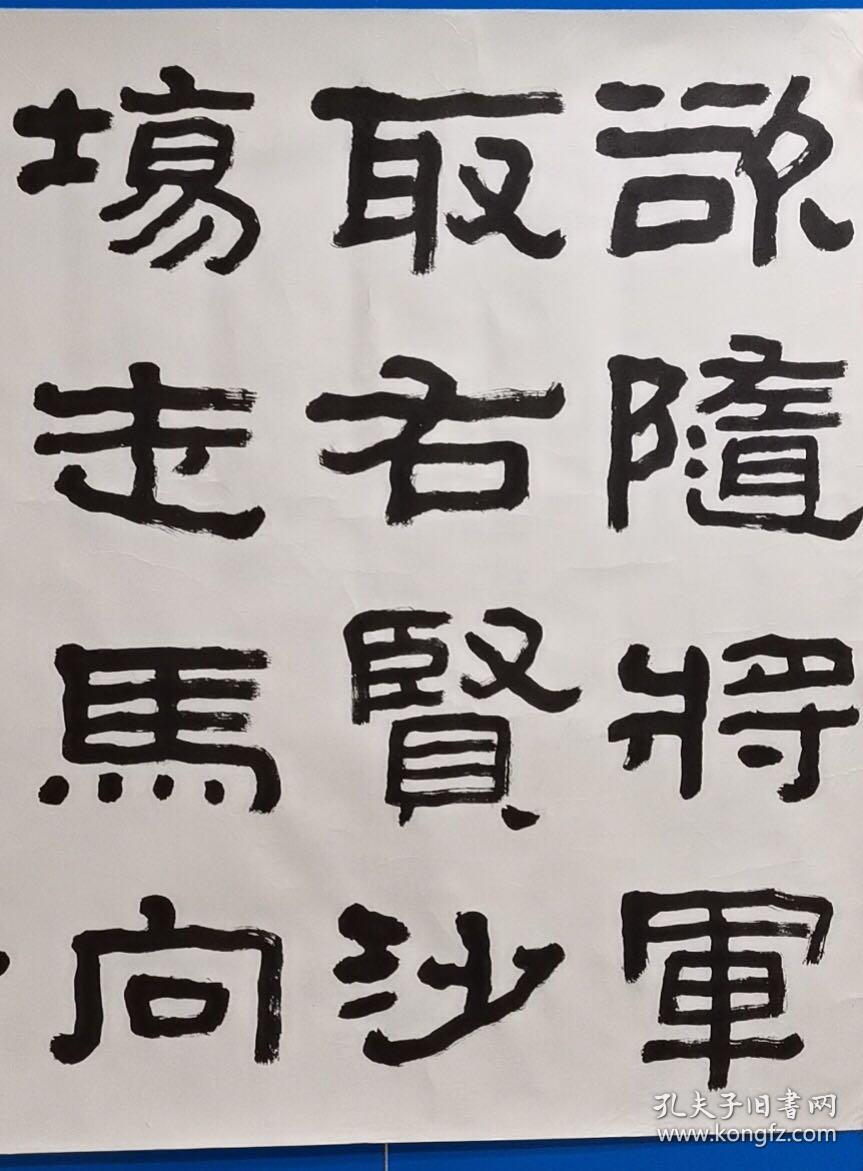 欲隨將軍
取右賢沙
場走馬向
孔夫子旧书网
www.kongfz.com